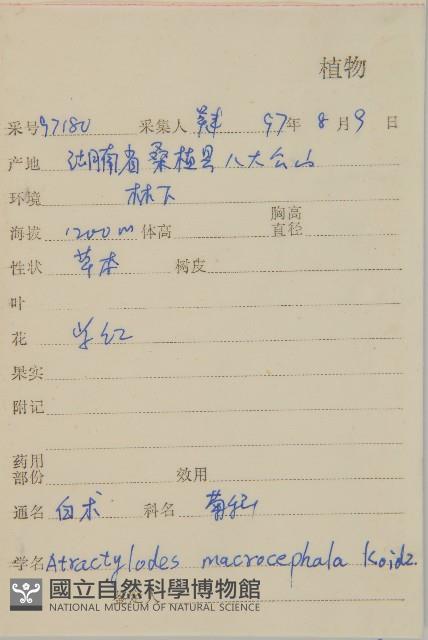 植物
采号 97180 采集人 97年 8月9日
产地 湖南省桑植县八大公山
环境 林下
胸高
海拨 1200m 体高 直径
性状 草本 树皮
叶
花 紫红
果实
附记
药用
部份 效用
通名 白术 科名 菊科
学名 Atractylodes macrocephala Koidz.
國立自然科學博物館
NATIONAL MUSEUM OF NATURAL SCIENCE